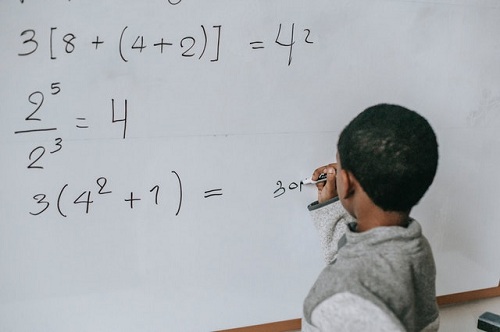 3[8+(4+2)] = 4²
2⁵/2³ = 4
3(4² + 1) =